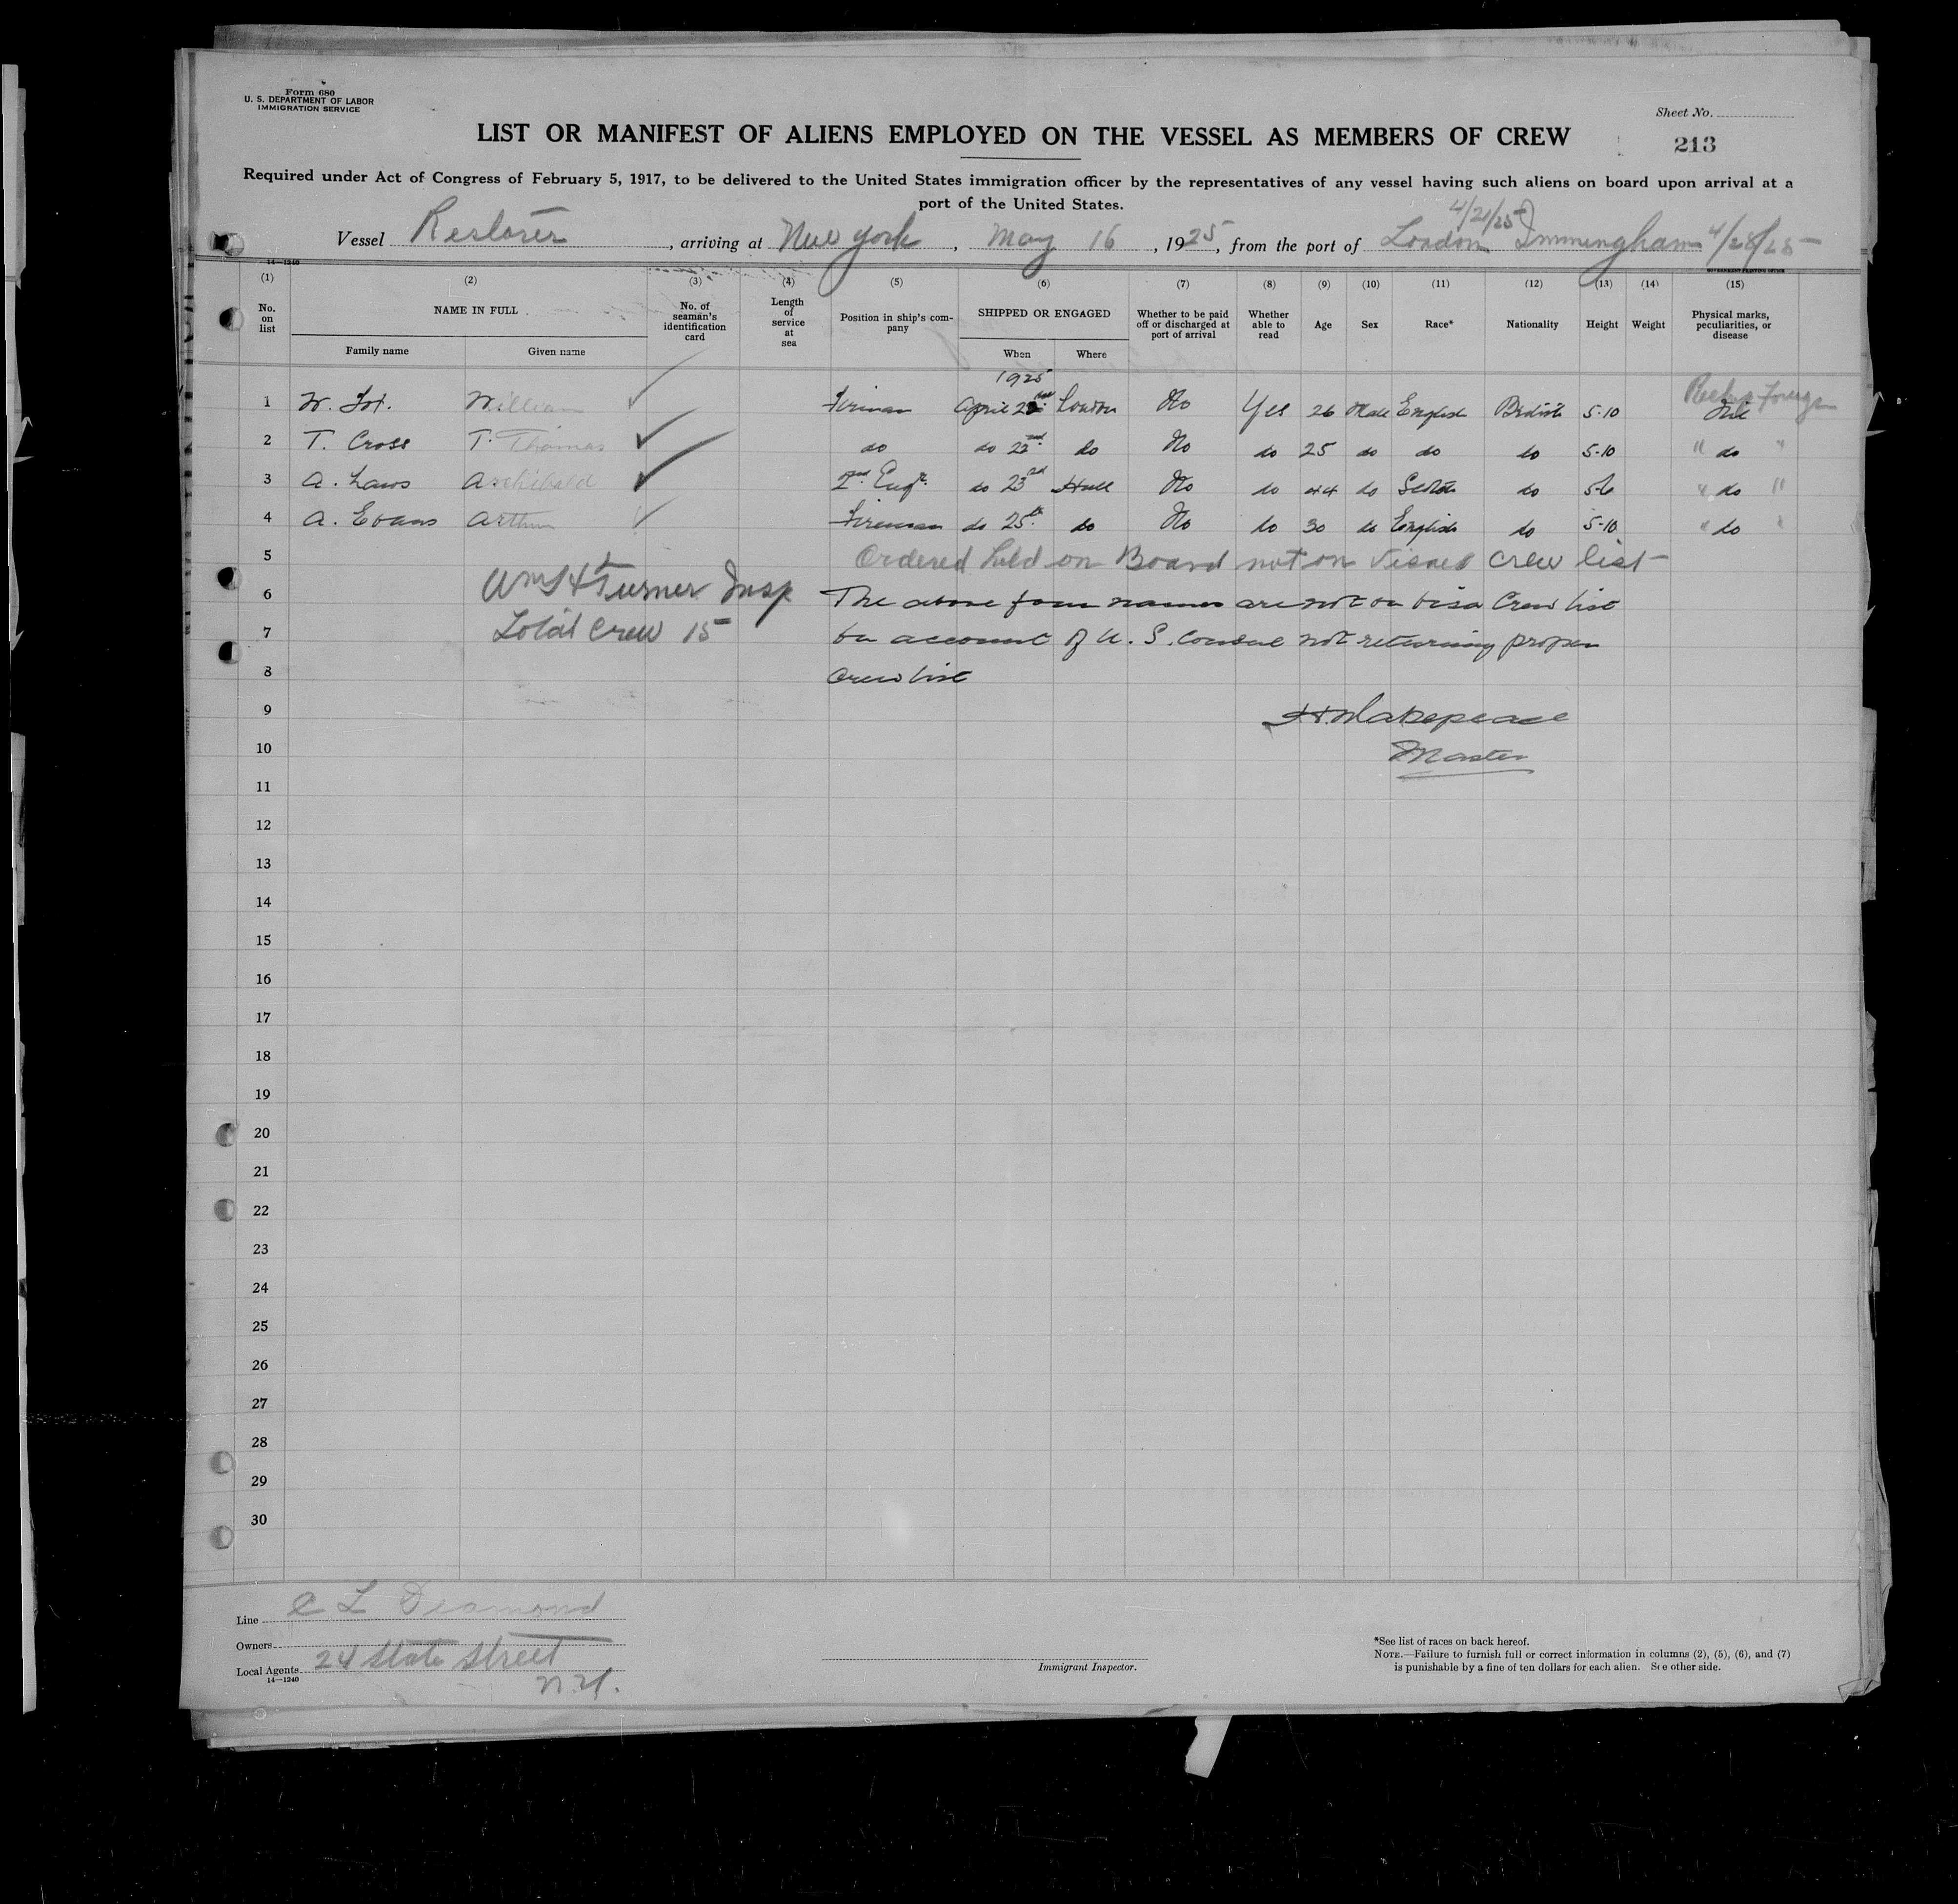 Form 680
U. S. DEPARTMENT OF LABOR
IMMIGRATION SERVICE
Sheet No.
LIST OR MANIFEST OF ALIENS EMPLOYED ON THE VESSEL AS MEMBERS OF CREW
213
Required under Act of Congress of February 5, 1917, to be delivered to the United States immigration officer by the representatives of any vessel having such aliens on board upon arrival at a
port of the United States.
4/21/25
Vessel Restorer, arriving at New York, May 16, 1925, from the port of London Immingham 4/28/25
14—1240
GOVERNMENT PRINTING OFFICE
(1) (2) (3) (4) (5) (6) (7) (8) (9) (10) (11) (12) (13) (14) (15)
No. on list
NAME IN FULL
Family name
Given name
No. of seaman's identification card
Length of service at sea
Position in ship's company
SHIPPED OR ENGAGED
When
Where
Whether to be paid off or discharged at port of arrival
Whether able to read
Age
Sex
Race*
Nationality
Height
Weight
Physical marks, peculiarities, or disease
1925
1 W. William Fireman April London No Yes 26 Male English British 5-10 Nil
2 T. Cross T. Thomas do do 22nd do No do 25 do do do 5-10 " do "
3 A. Laws Archibald 2nd Engr. do 23rd Hull No do 44 do Scotch do 5-6 " do "
4 A. Evans Arthur Fireman do 25th do No do 30 do English do 5-10 " do "
5 Ordered held on Board not on visaed crew list
6 Wm H Turner Insp The above four names are not on visa Crew list
7 Total Crew 15 on account of U. S. Consul not returning proper
8 Crew list
9 H. Makepeace
10 Master
11
12
13
14
15
16
17
18
19
20
21
22
23
24
25
26
27
28
29
30
Line C L Desmond
Owners
Local Agents 24 State Street
14—1240
N.Y.
Immigrant Inspector.
*See list of races on back hereof.
NOTE.—Failure to furnish full or correct information in columns (2), (5), (6), and (7)
is punishable by a fine of ten dollars for each alien. See other side.